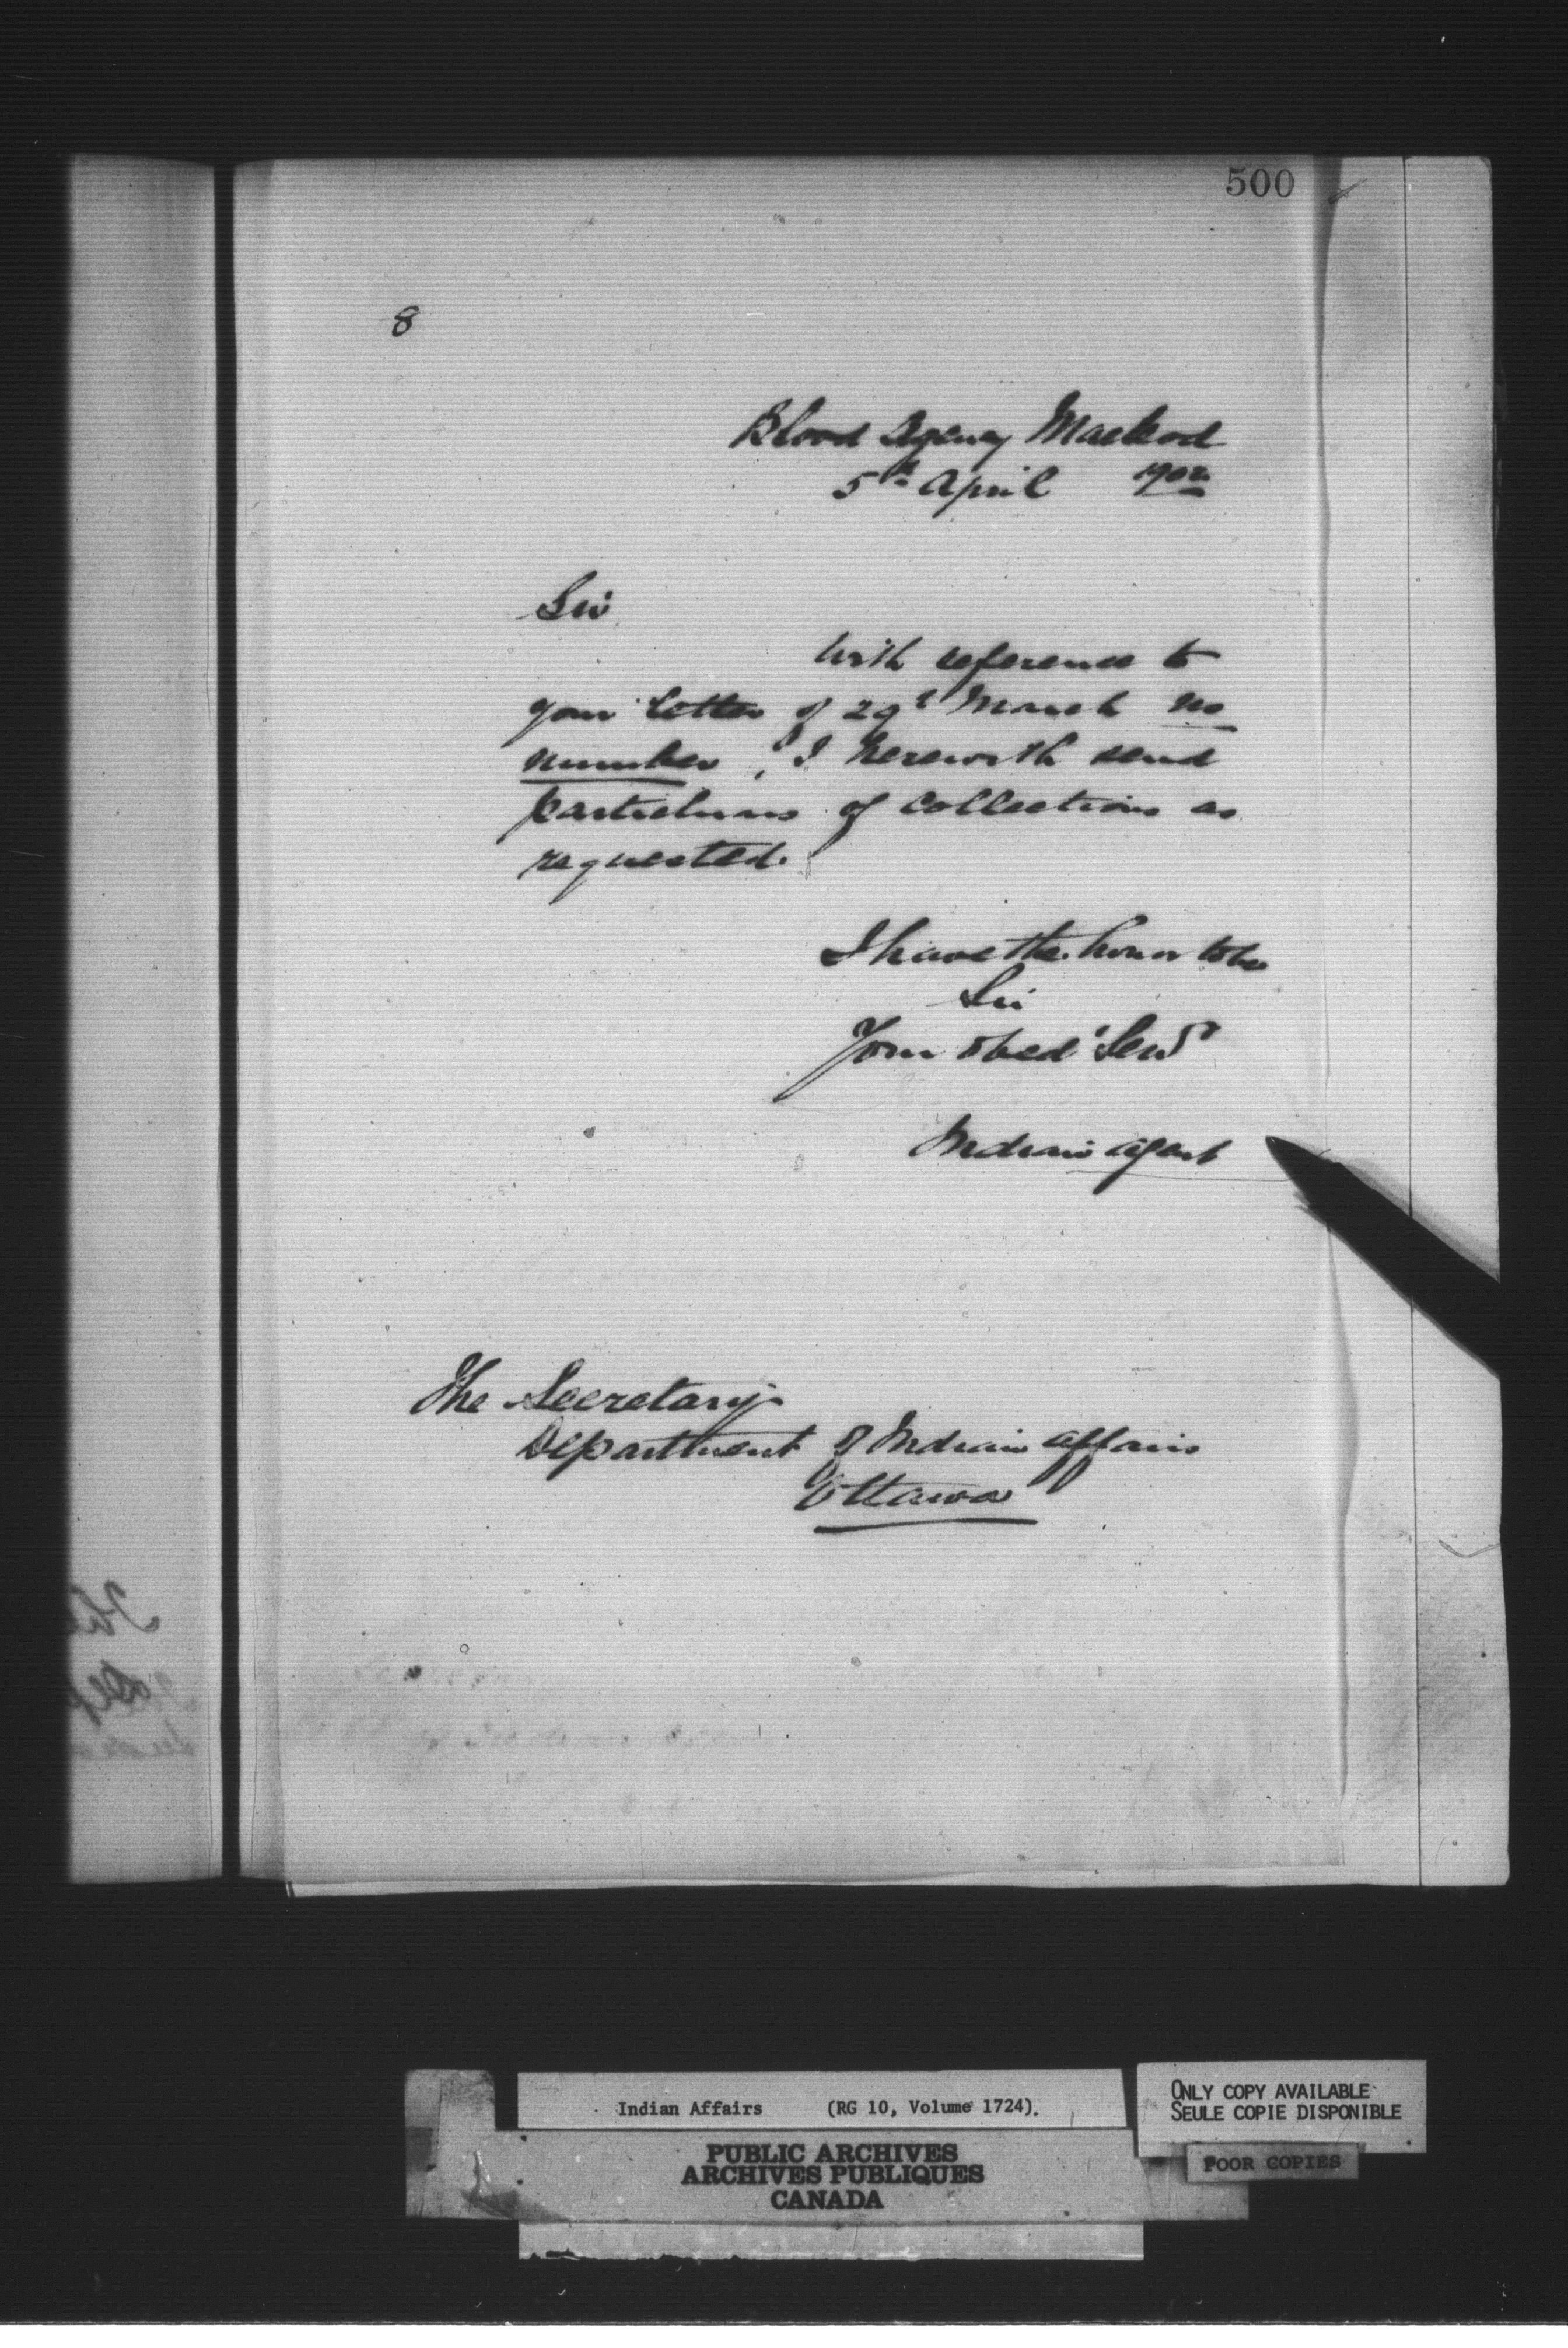 500
8
Blood Agency Macleod
5th April 1902
Sir
With reference to
your letter of 29th March no
number, I herewith send
particulars of collections as
requested.
I have the honor to be
Sir
Your obed't Serv't
Indian Agent
The Secretary
Department of Indian Affairs
Ottawa
Indian Affairs (RG 10, Volume 1724).
ONLY COPY AVAILABLE
SEULE COPIE DISPONIBLE
POOR COPIES
PUBLIC ARCHIVES
ARCHIVES PUBLIQUES
CANADA